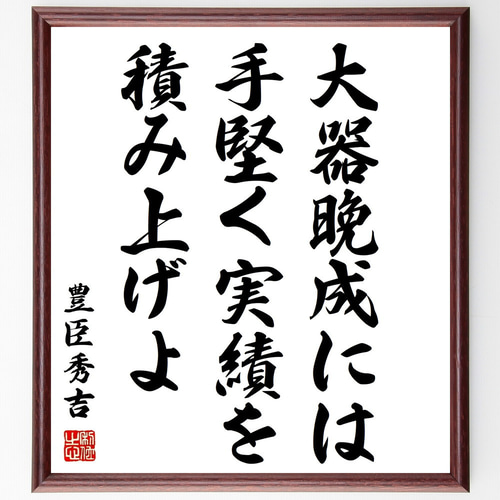 大器晩成には
手堅く実績を
積み上げよ
豊臣秀吉